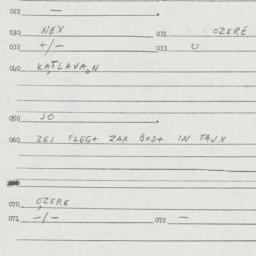 022 —
030 NEX 031 OZERE
032 +/— 033 O
040 KATLAVA,N
050 JO
060 ZEJ FLEG+ ZAX BOD+ IN TAJX
070 OZERE
071 —/— 072 —